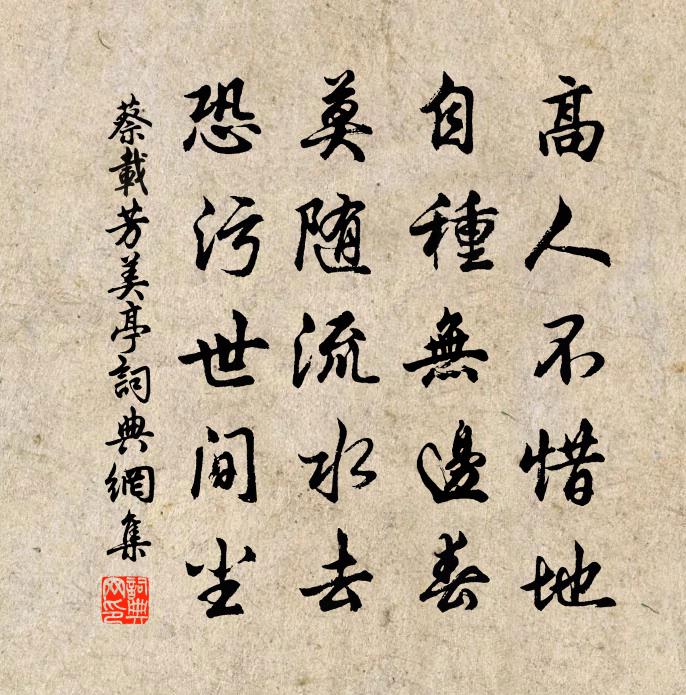 高人不惜地
自種無邊春
莫随流水去
恐污世間尘
蔡載芳美亭詞典網集
詞典网印